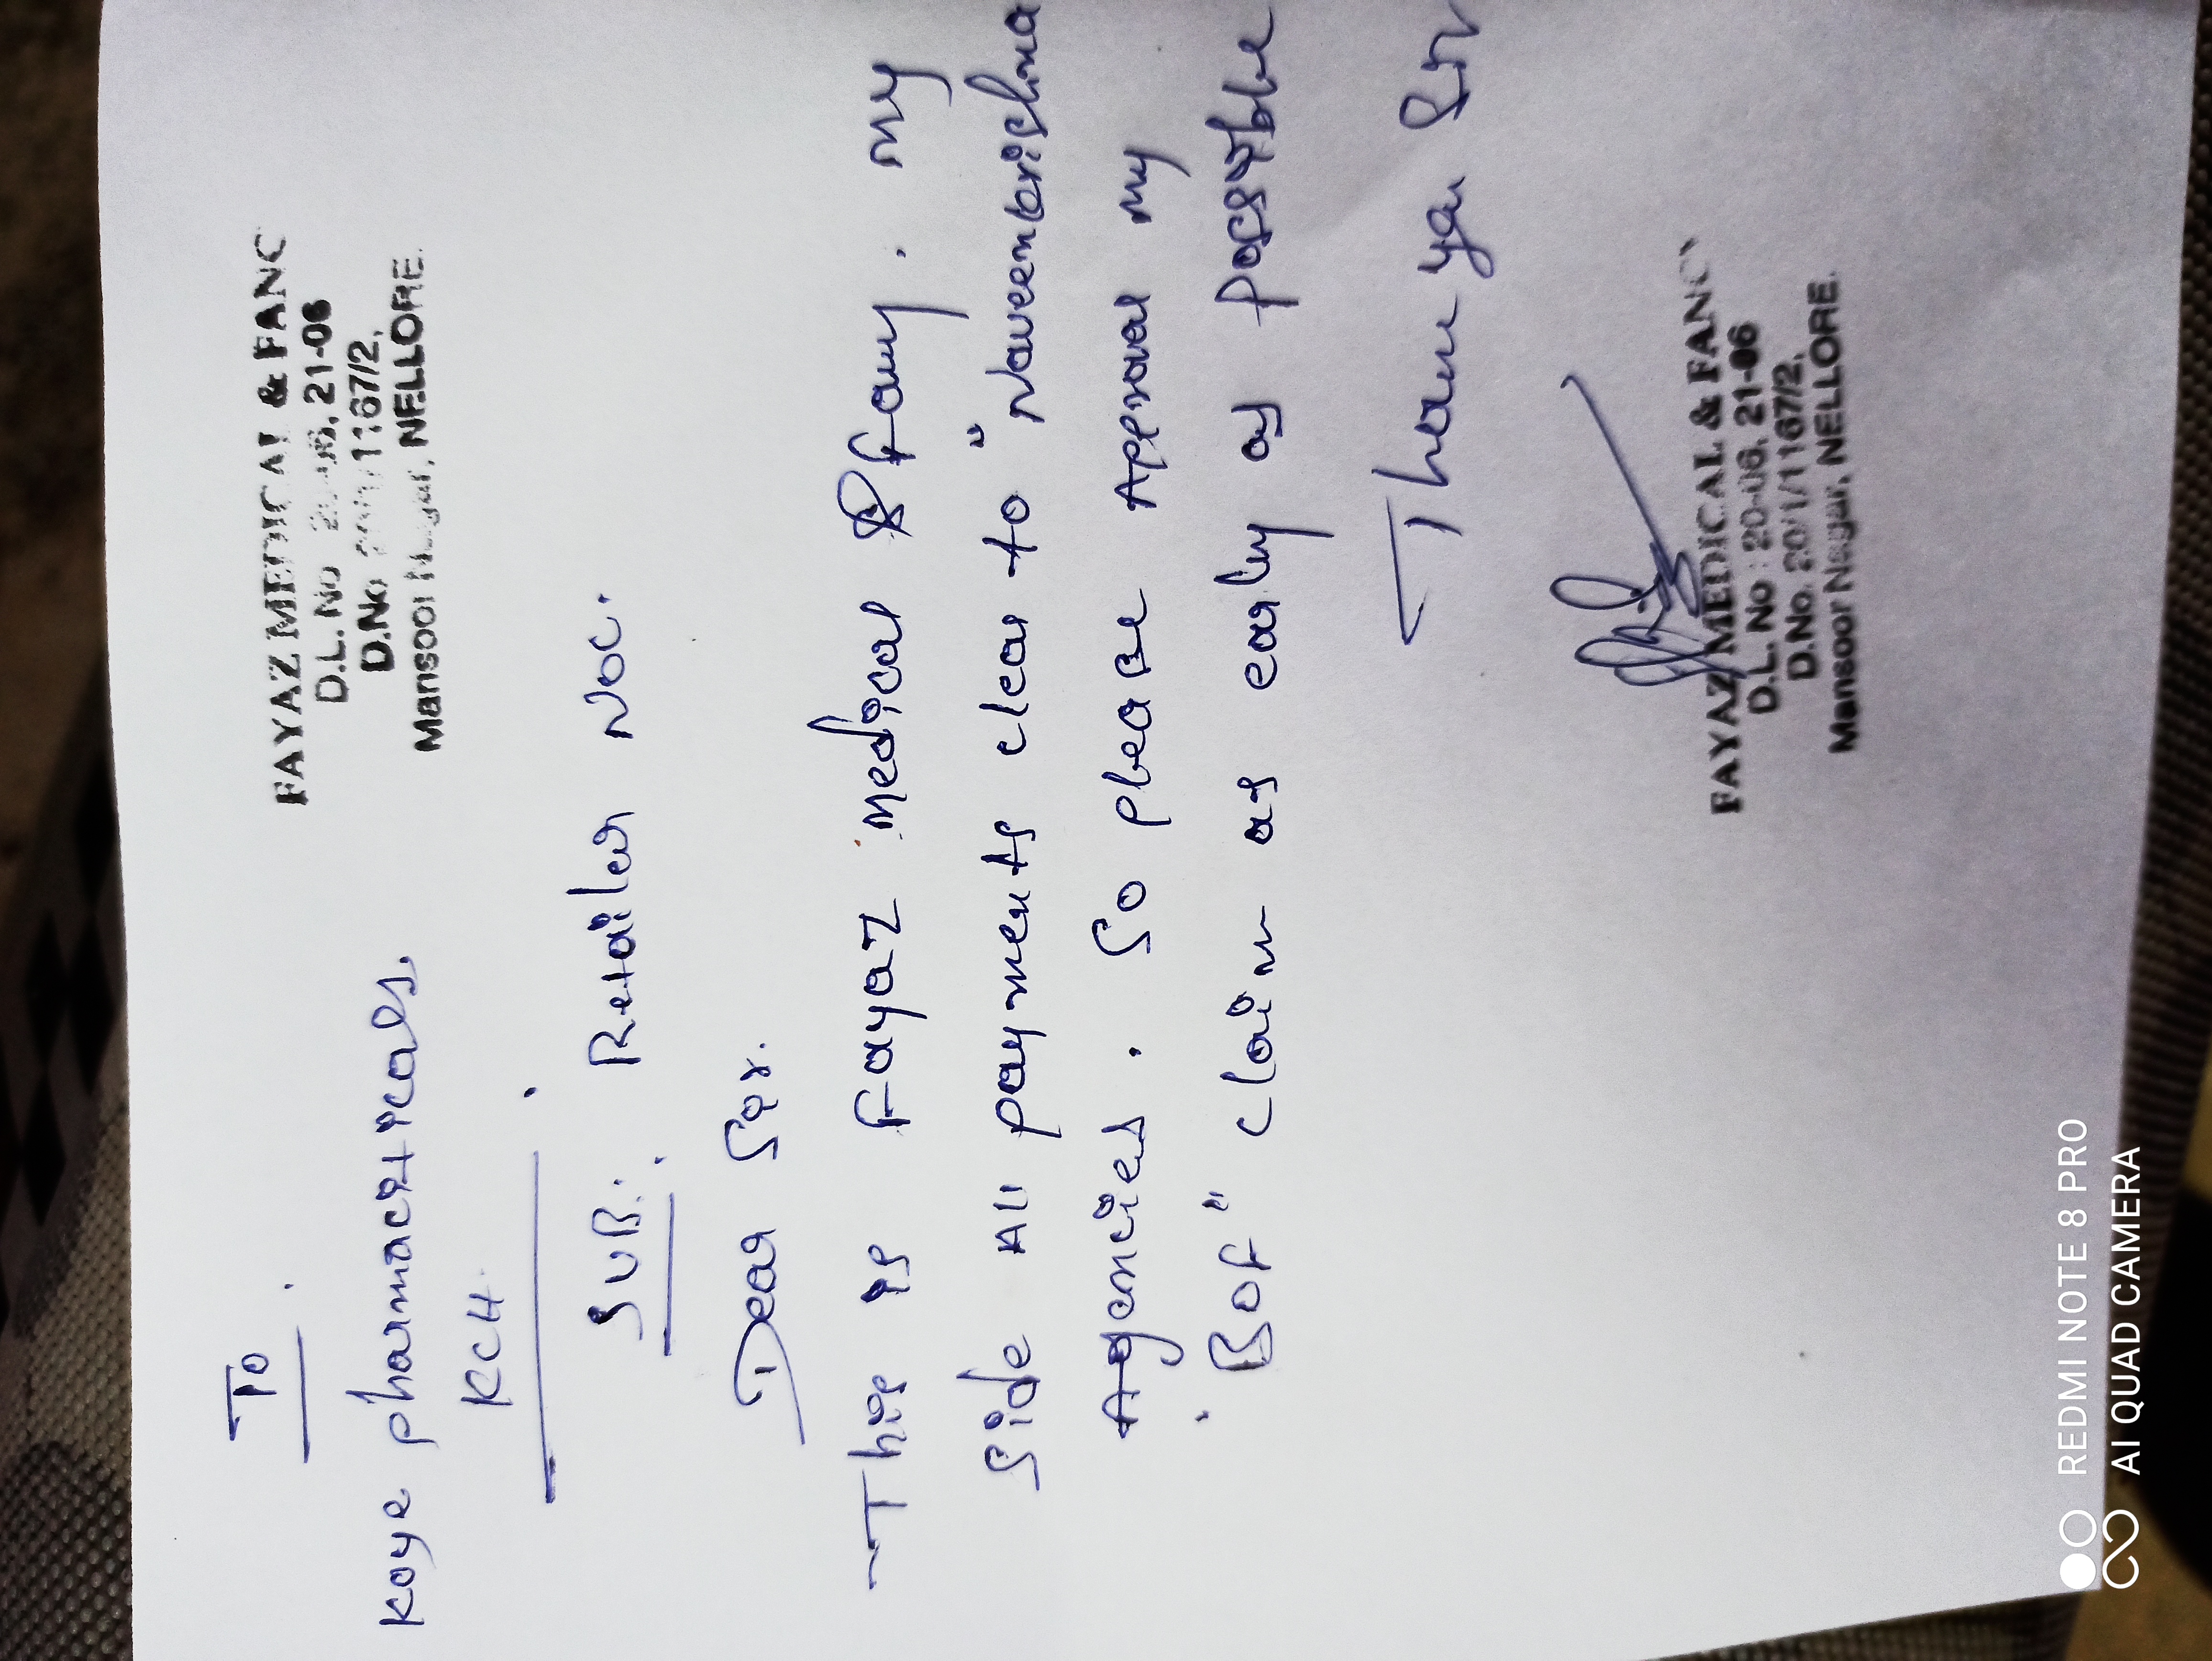 To
FAYAZ MEDICAL & FANC
D.L. No 20-06, 21-06
D.No. 20/1/1167/2,
Mansoor Nagar, NELLORE.
Koye pharmaceuticals,
KCH
SUB: Retailer NOC.
Dear Sir.
This is Fayaz medical & Fany. my
side All payments clear to "Naveenkrishna
Agencies. So please Approval my
"BOF" claim as early as possible
Thank you Sir
FAYAZ MEDICAL & FANCY
D.L. No : 20-06, 21-06
D.No. 20/1/1167/2,
Mansoor Nagar, NELLORE.
REDMI NOTE 8 PRO
AI QUAD CAMERA